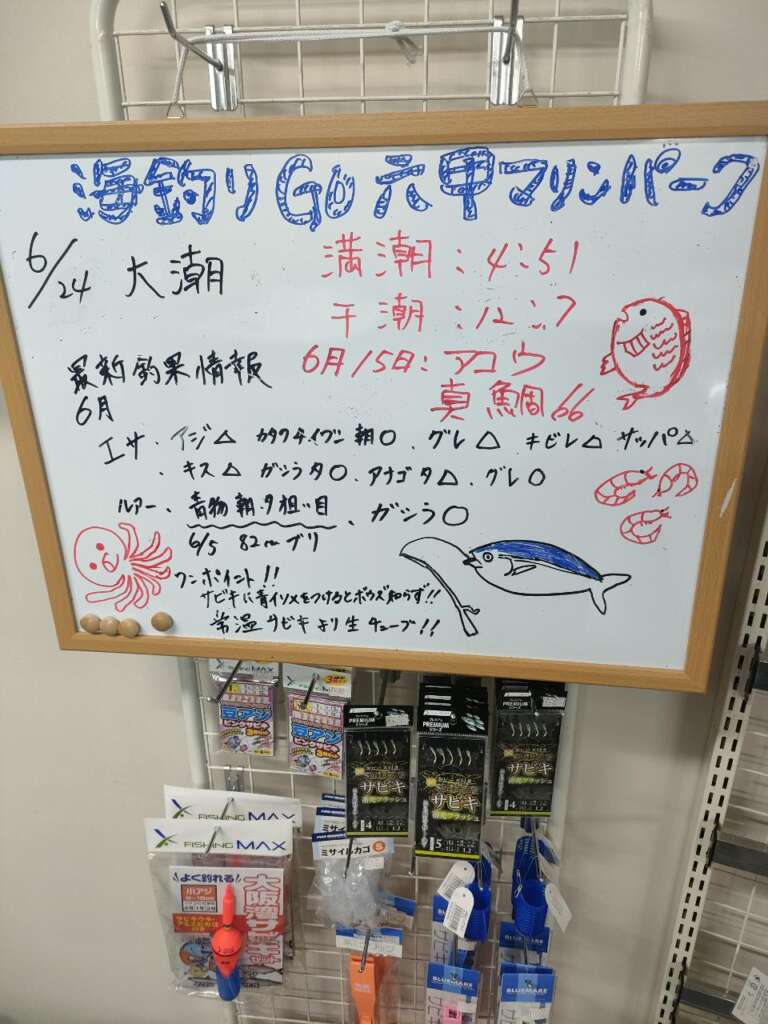 海釣りGO六甲マリンパーク
6/24 大潮
満潮:4:51
干潮:12:7
最新釣果情報
6月
6月15日:アコウ
真鯛66
エサ.アジ△ カタクチイワシ 朝○.グレ△ キビレ△ サッパ△
.キス△ ガシラ夕○.アナゴ夕△.グレ○
ルアー.青物 朝.夕狙い目、ガシラ○
6/5 82cmブリ
ワンポイント!!
サビキに青イソメをつけるとボウズ知らず!!
常温サビキより生チューブ!!
FISHING MAX
豆アジ
ピンクサビキ
豆アジ
ピンクサビキ
PREMIUM
サビキ
4
PREMIUM
サビキ
5
サビキ
4
FISHING MAX
よく釣れる!
小アジ
大阪湾サビキ
ミサイルカゴ S
BLUEMARE
サビキ
BLUEMARE
サビキ